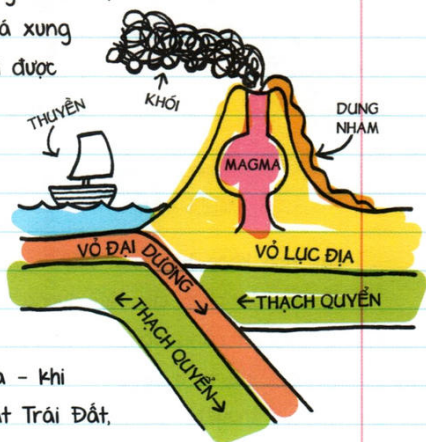 á xung
được
KHÓI
THUYỀN
DUNG
NHAM
MAGMA
VỎ ĐẠI DƯƠNG
VỎ LỤC ĐỊA
THẠCH QUYỂN
THẠCH QUYỂN
- khi
Trái Đất,